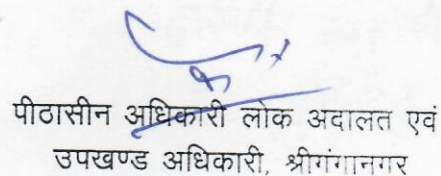 पीठासीन अधिकारी लोक अदालत एवं
उपखण्ड अधिकारी, श्रीगंगानगर